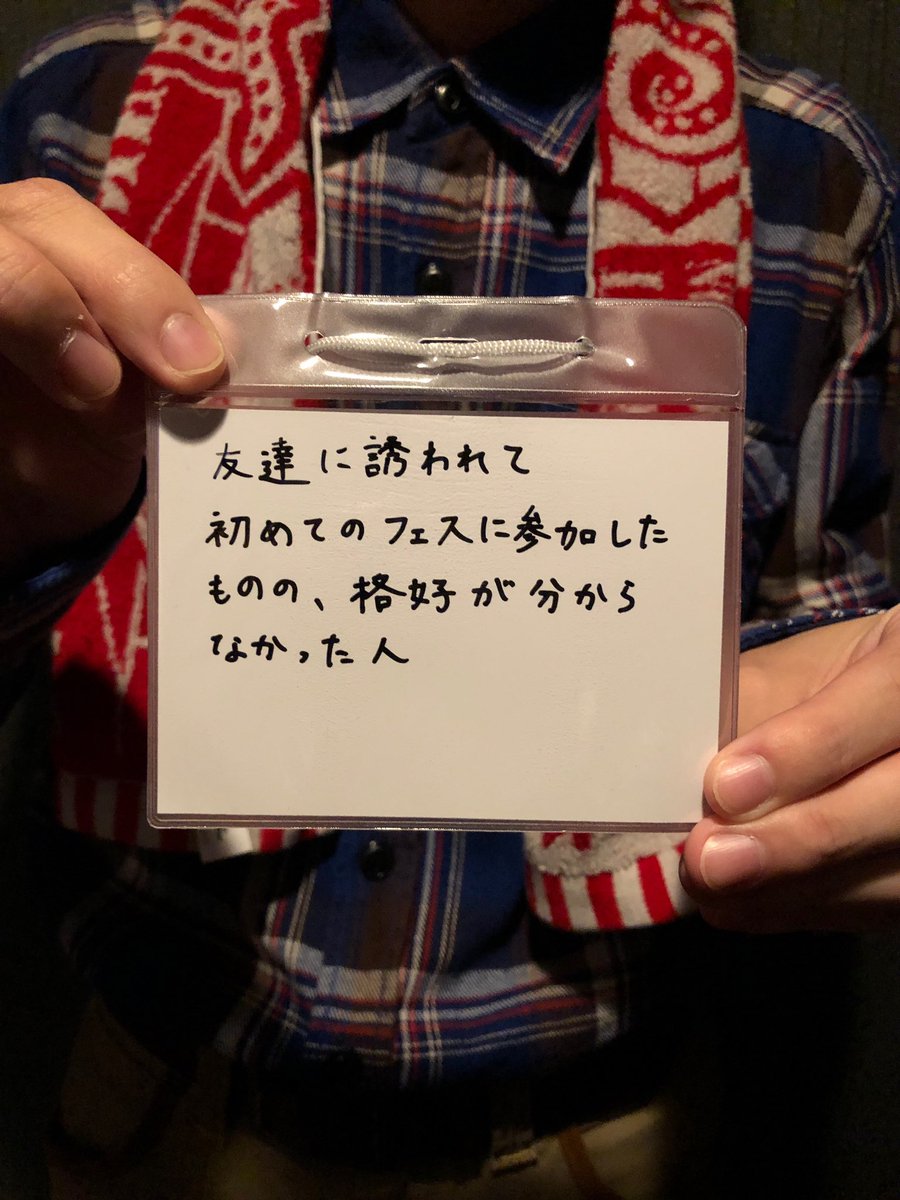 友達に誘われて
初めてのフェスに参加した
ものの、格好が分から
なかった人